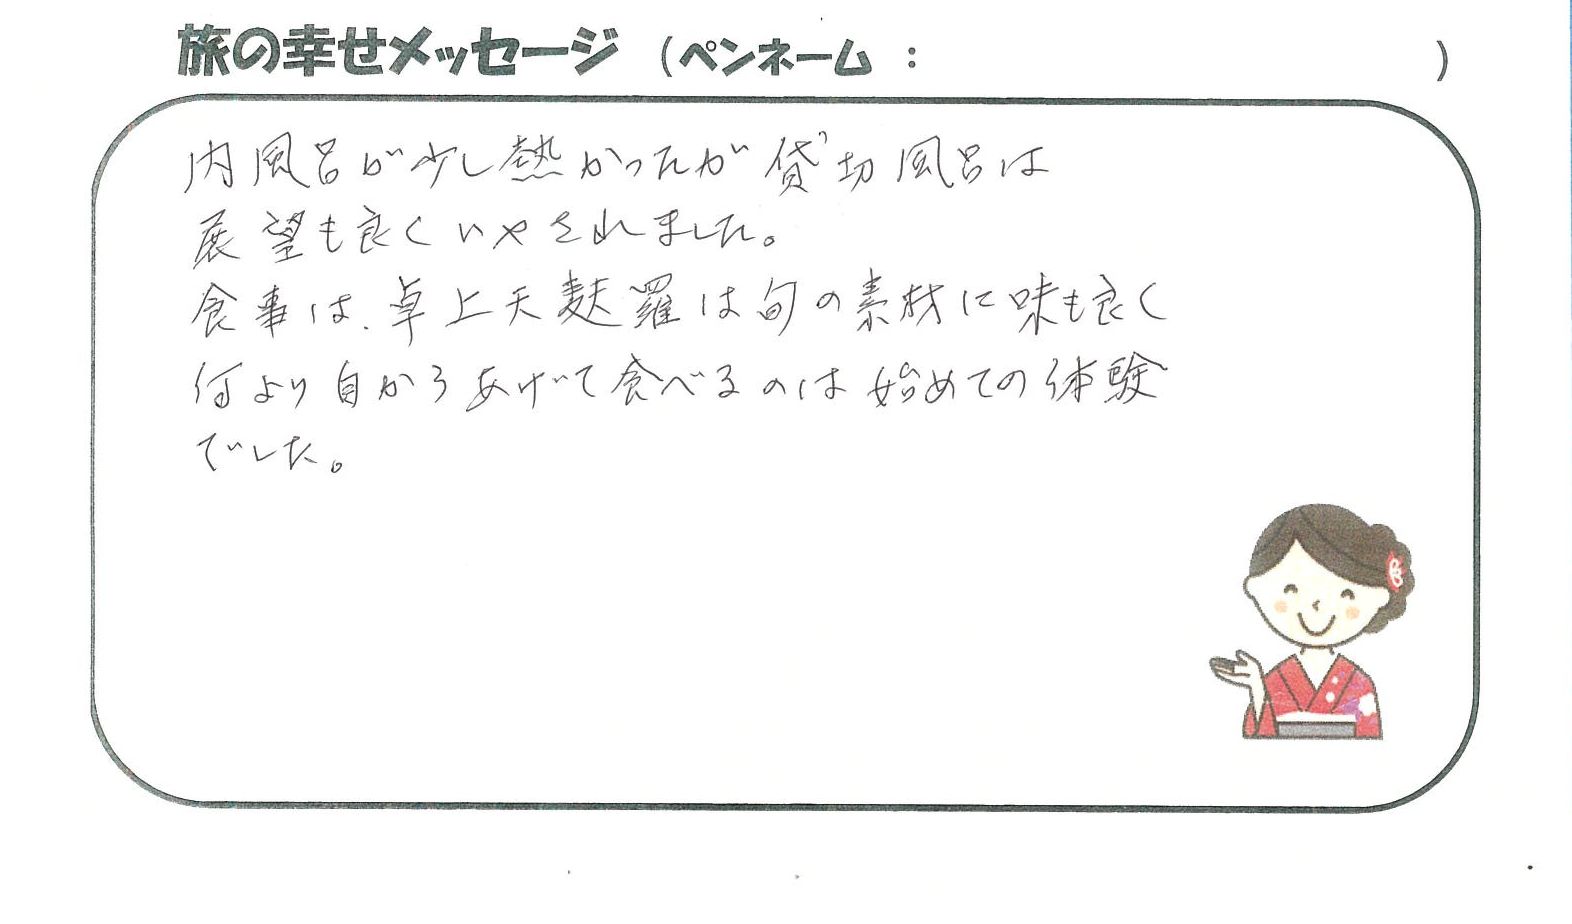 旅の幸せメッセージ (ペンネーム : )
内風呂が少し熱かったが貸切風呂は
展望も良くいやされました。
食事は、卓上天麩羅は旬の素材に味も良く
何より自からあげて食べるのは始めての体験
でした。